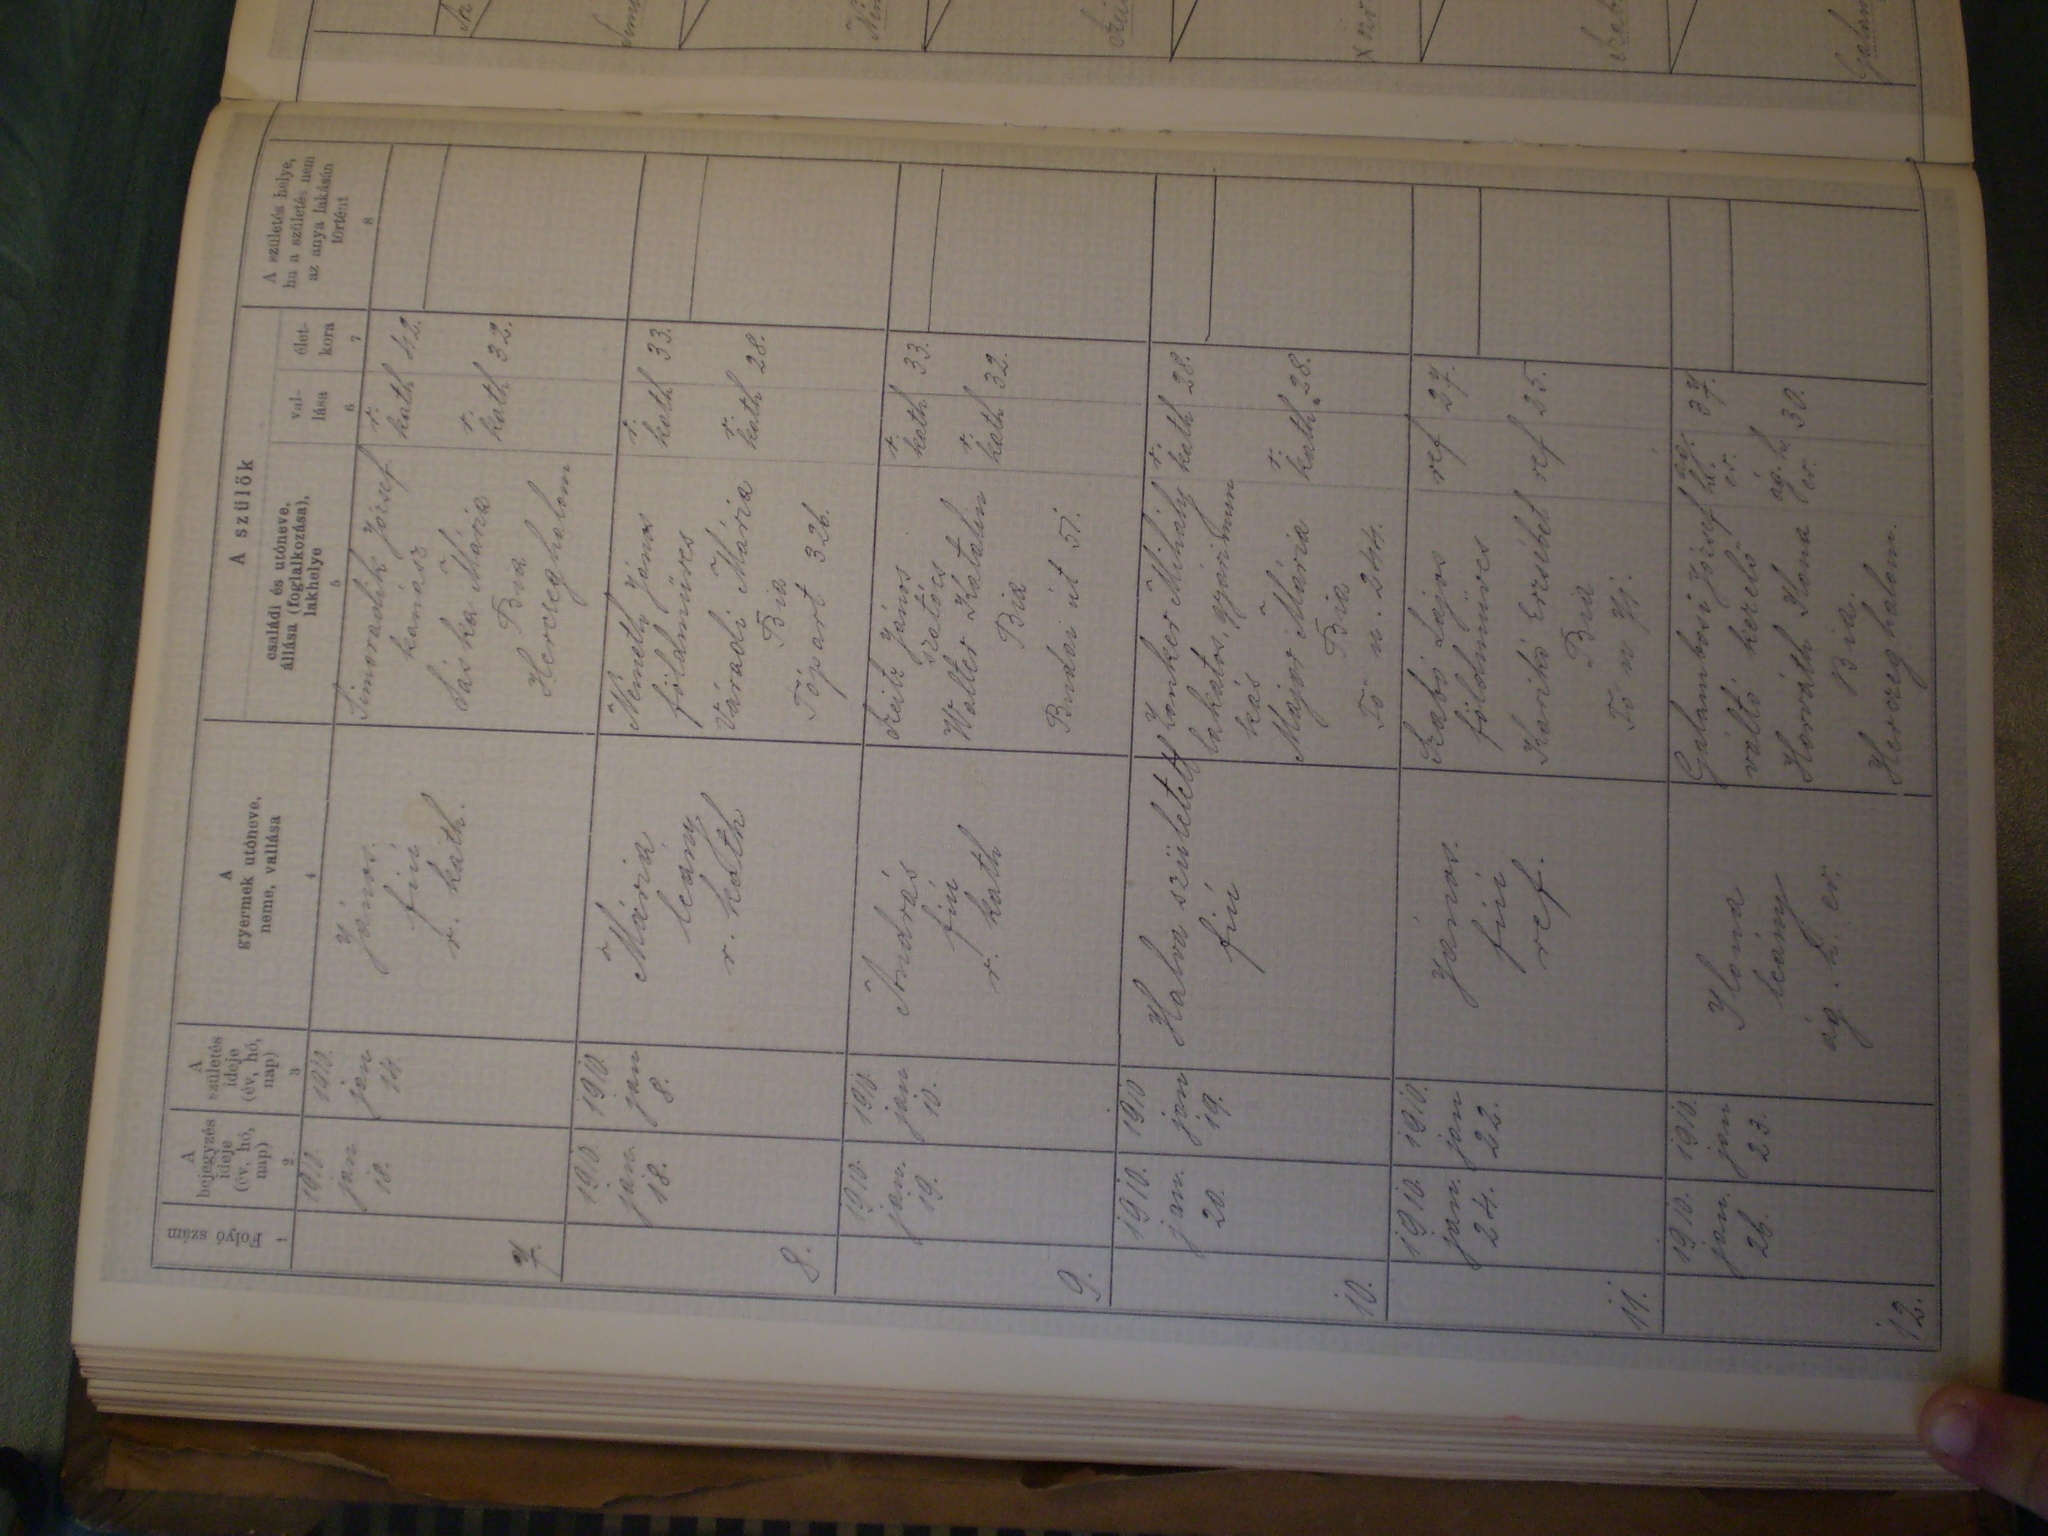 Folyó szám
1
A
bejegyzés
ideje
(év, hó,
nap)
2
A
születés
ideje
(év, hó,
nap)
3
A
gyermek utóneve,
neme, vallása
4
A szülők
családi és utóneve,
állása (foglalkozása),
lakhelye
5
val-
lása
6
élet-
kora
7
A születés helye,
ha a születés nem
az anya lakásán
történt
8
7.
1910.
jan
18.
1910.
jan
14.
János.
fiú
r. kath.
József
kanász
Sáska Mária
Bia
Herczeghalom
r.
kath 42.
r.
kath 32.
8.
1910.
jan.
18.
1910.
jan
8.
Mária
leány
r. kath
Németh János
földműves
Váradi Mária
Bia
Tópart 326.
r.
kath 33.
r.
kath 28.
9.
1910.
jan.
19.
1910.
jan
10.
András
fiú
r. kath
Zeitz János
szatócs
Walter Katalin
Bia
Budai út 51.
r.
kath 33.
r.
kath 32.
10.
1910.
jan.
20.
1910
jan
19.
Halva született
fiú
Mihály
lakatos,
Major Mária
Bia
Tó u. 244.
r.
kath 28.
r.
kath. 28.
11.
1910.
jan.
24.
1910.
jan
22.
János.
fiú
ref.
Szabó Lajos
földműves
Karikó Erzsébet
Bia
ref 27.
ref 25.
12.
1910.
jan.
26.
1910.
jan
23.
Ilona
leány
ág. h. ev.
Galambosi József
váltó kezelő
Horváth Ilona
Bia.
Herczeghalom.
ág.
h.
ev. 37.
ág. h.
ev. 30.